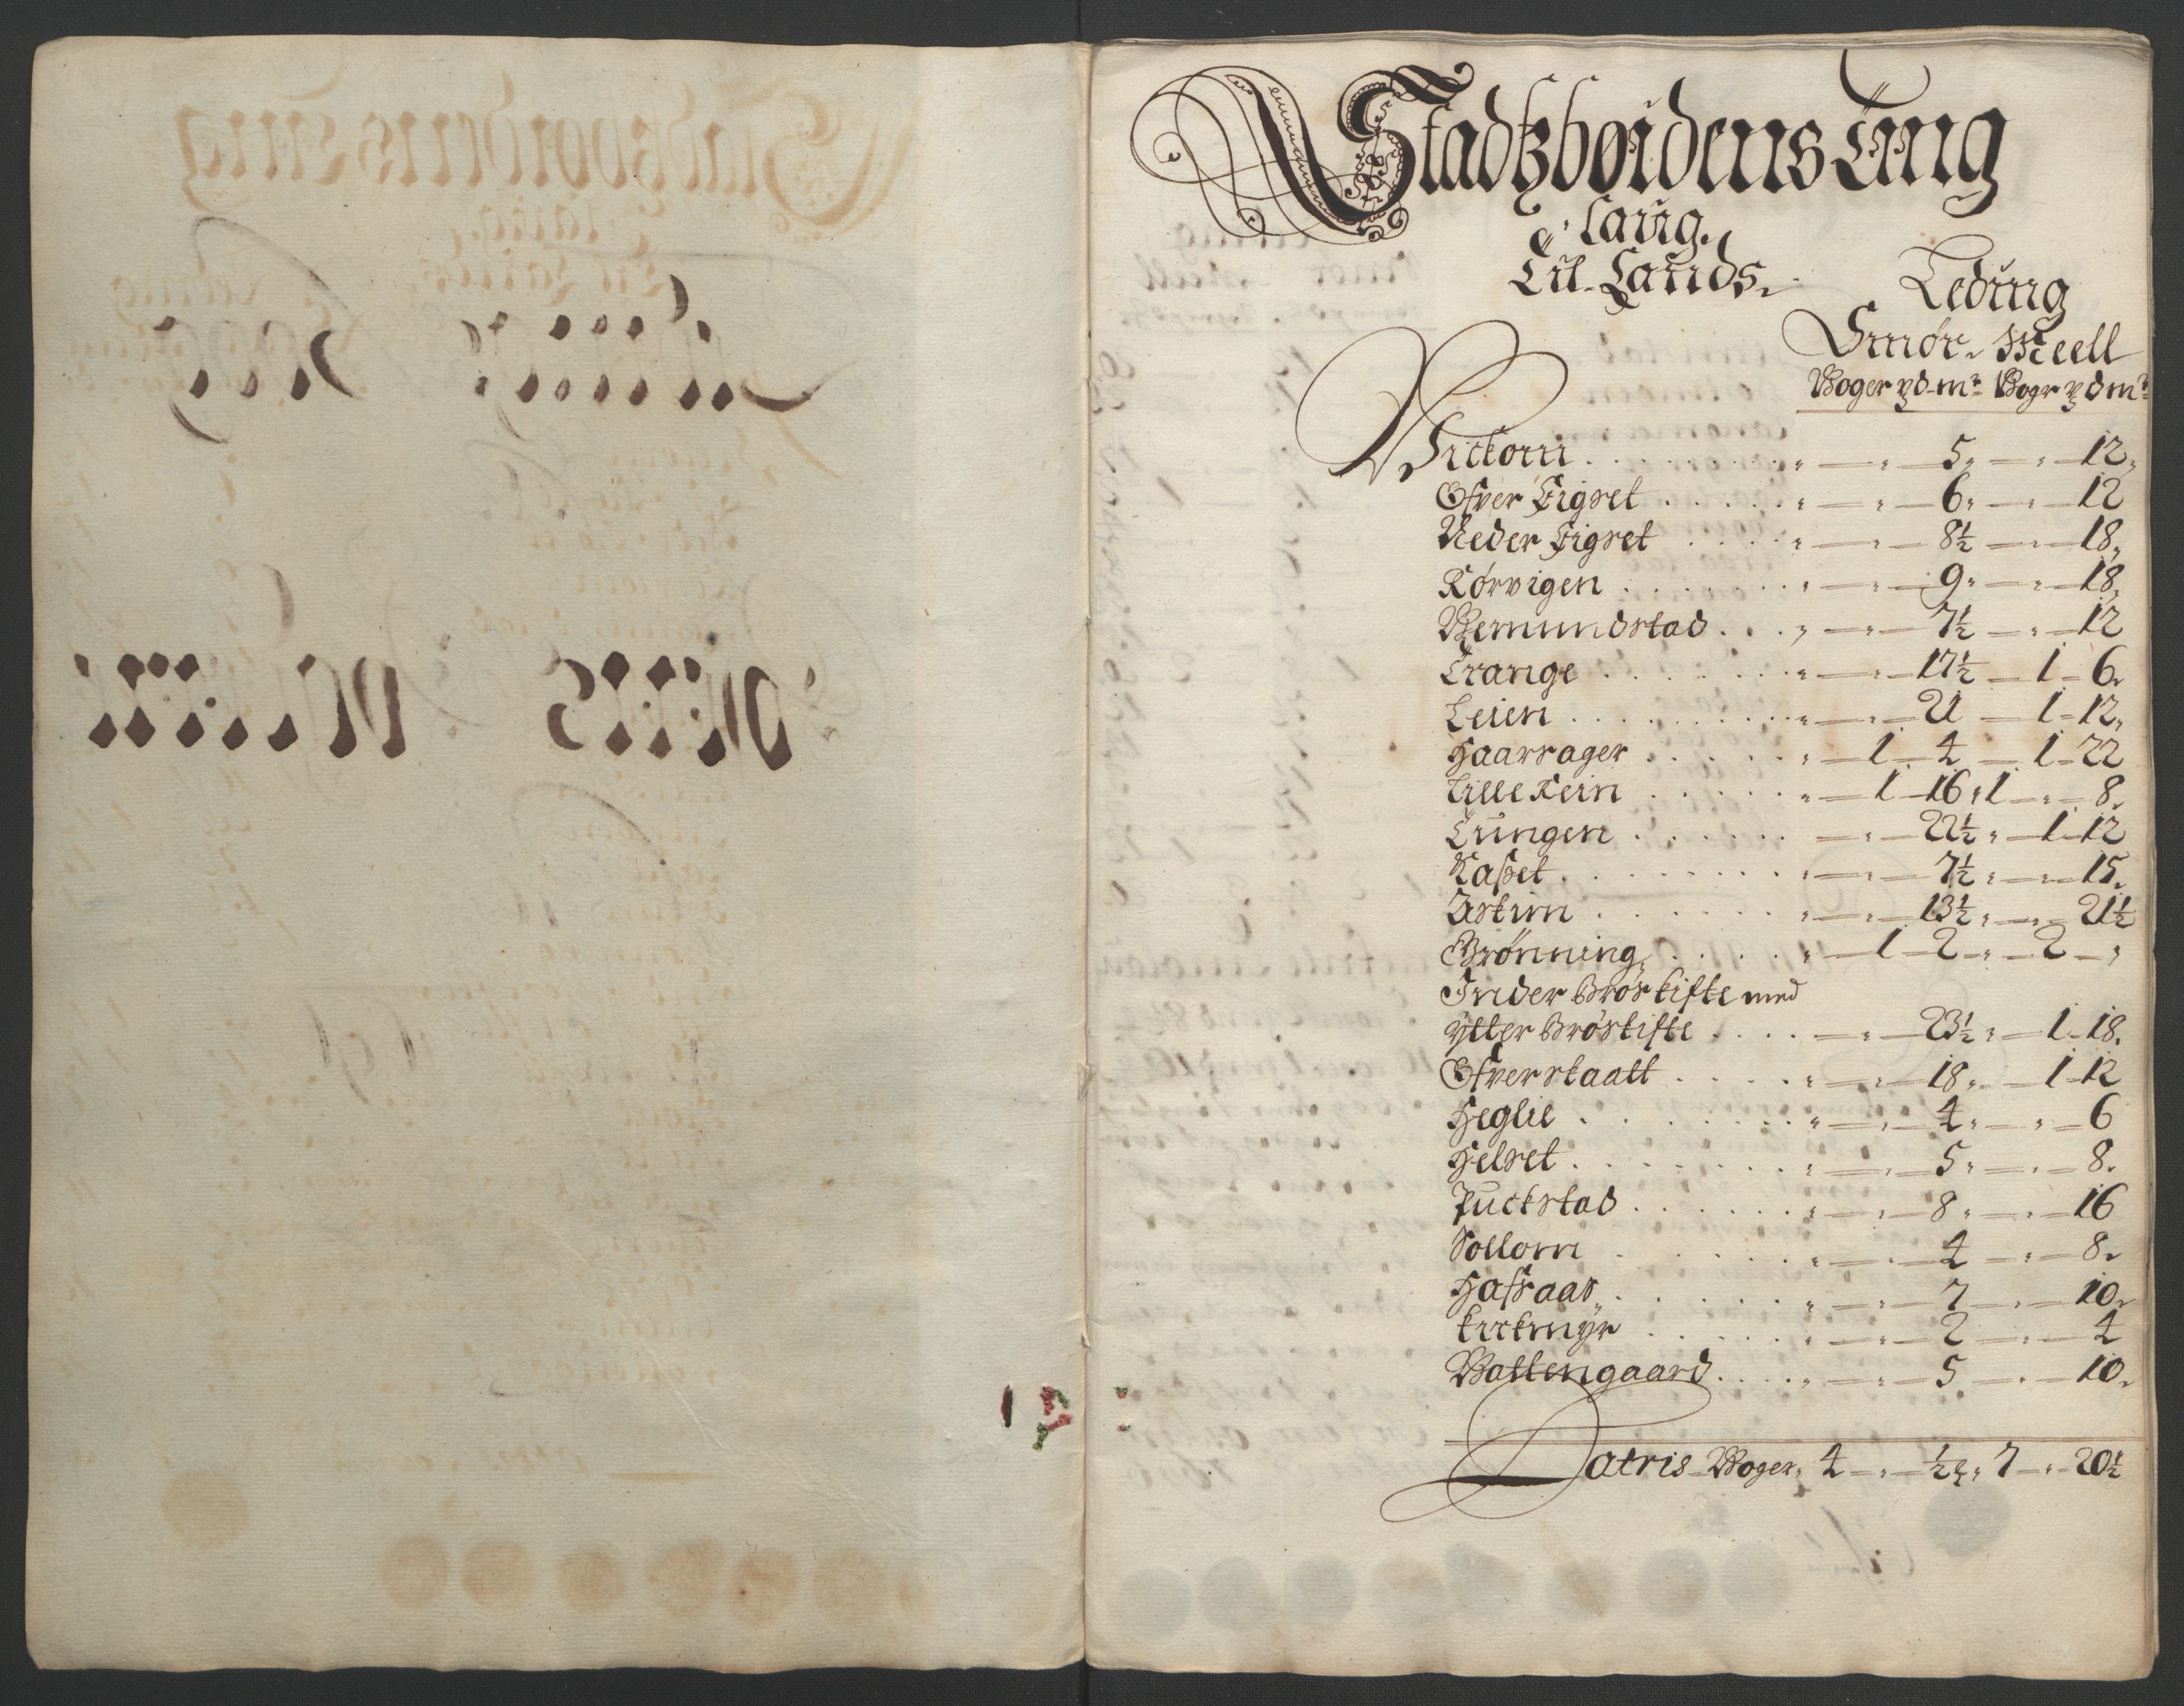 Stadtzbøidens Ting
Laug.
Til Lands
Leding
Smør Meell
Woger pd mr Wogr pd mr
Wictom " " 5 " 12
Ofver Tigset " " 6 " 12
Neder Tigset " " 8½ " 18
Kørvigen " " 9 " 18
Wemundstad " " 7½ " 12
Trange " " 17½ 1 6
Leien " " 21 1 12
Haarsager " 1 4 1 22
Lille Rein " 1 16 1 " 8
Tungen " 22½ " 1 12
Rasset " " 7½ " " 15
Astun " " 13½ " " 21½
Grønning " 1 2 " 2 "
Inder Brøskifte med
ytter Brøskifte " 23½ " 1 18
Ofverstaatt " " 18 " 1 12
Heglie " " 4 " " 6
Helset " " 5 " " 8
Puckstad " " 8 " " 16
Sollom " " 4 " 8
Hafsaas " " 7 " 10
Kirkmyr " " 2 " 4
Wattengaard " " 5 " 10
Latris Woger 4 " ½ " 7 " 20½